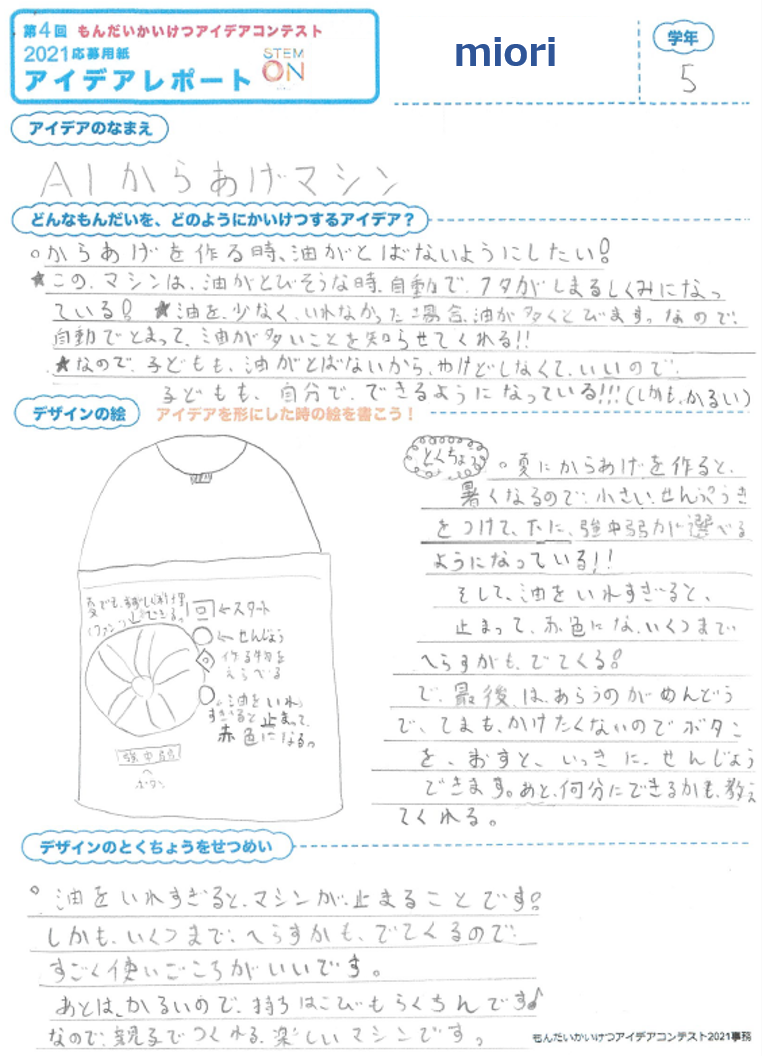 第4回 もんだいかいけつアイデアコンテスト
2021応募用紙
アイデアレポート
STEM
ON
miori
学年
5
アイデアのなまえ
AIからあげマシン
どんなもんだいを、どのようにかいけつするアイデア？
○からあげを作る時、油がとばないようにしたい!
★この、マシンは、油がとびそうな時、自動で、フタがしまるしくみになっ
ている! ★油を、少なく、いれなかった場合、油が多くとびます。なので、
自動でとまって、油が多いことを知らせてくれる!!
★なので、子どもも、油がとばないから、やけどしなくて、いいので、
子どもも、自分で、できるようになっている!!!(しかも、かるい)
デザインの絵
アイデアを形にした時の絵を書こう！
とくちょう
○夏にからあげを作ると、
暑くなるので、小さい、せんぷうき
をつけて、強中弱か選べる
ようになっている!!
そして、油をいれすぎると、
止まって、赤色にな、いくつまで
へらすかも、でてくる!
で、最後、は、あらうのがめんどう
で、てまも、かけたくないのでボタン
を、おすと、いっきに、せんじょう
できます。あと、何分にできるかも、教え
てくれる。
夏でも、すずしく料理
(ファン)できる。
←スタート
←せんじょう
作る物を
えらべる
←油をいれ
すぎると止まって、
赤色になる。
強中弱
ボタン
デザインのとくちょうをせつめい
○油をいれすぎると、マシンが、止まることです!
しかも、いくつまで、へらすかも、でてくるので、
すごく使いごこちがいいです。
あとは、かるいので、持ちはこびもらくちんです♪
なので、親子でつくれる、楽しいマシンです。
もんだいかいけつアイデアコンテスト2021事務